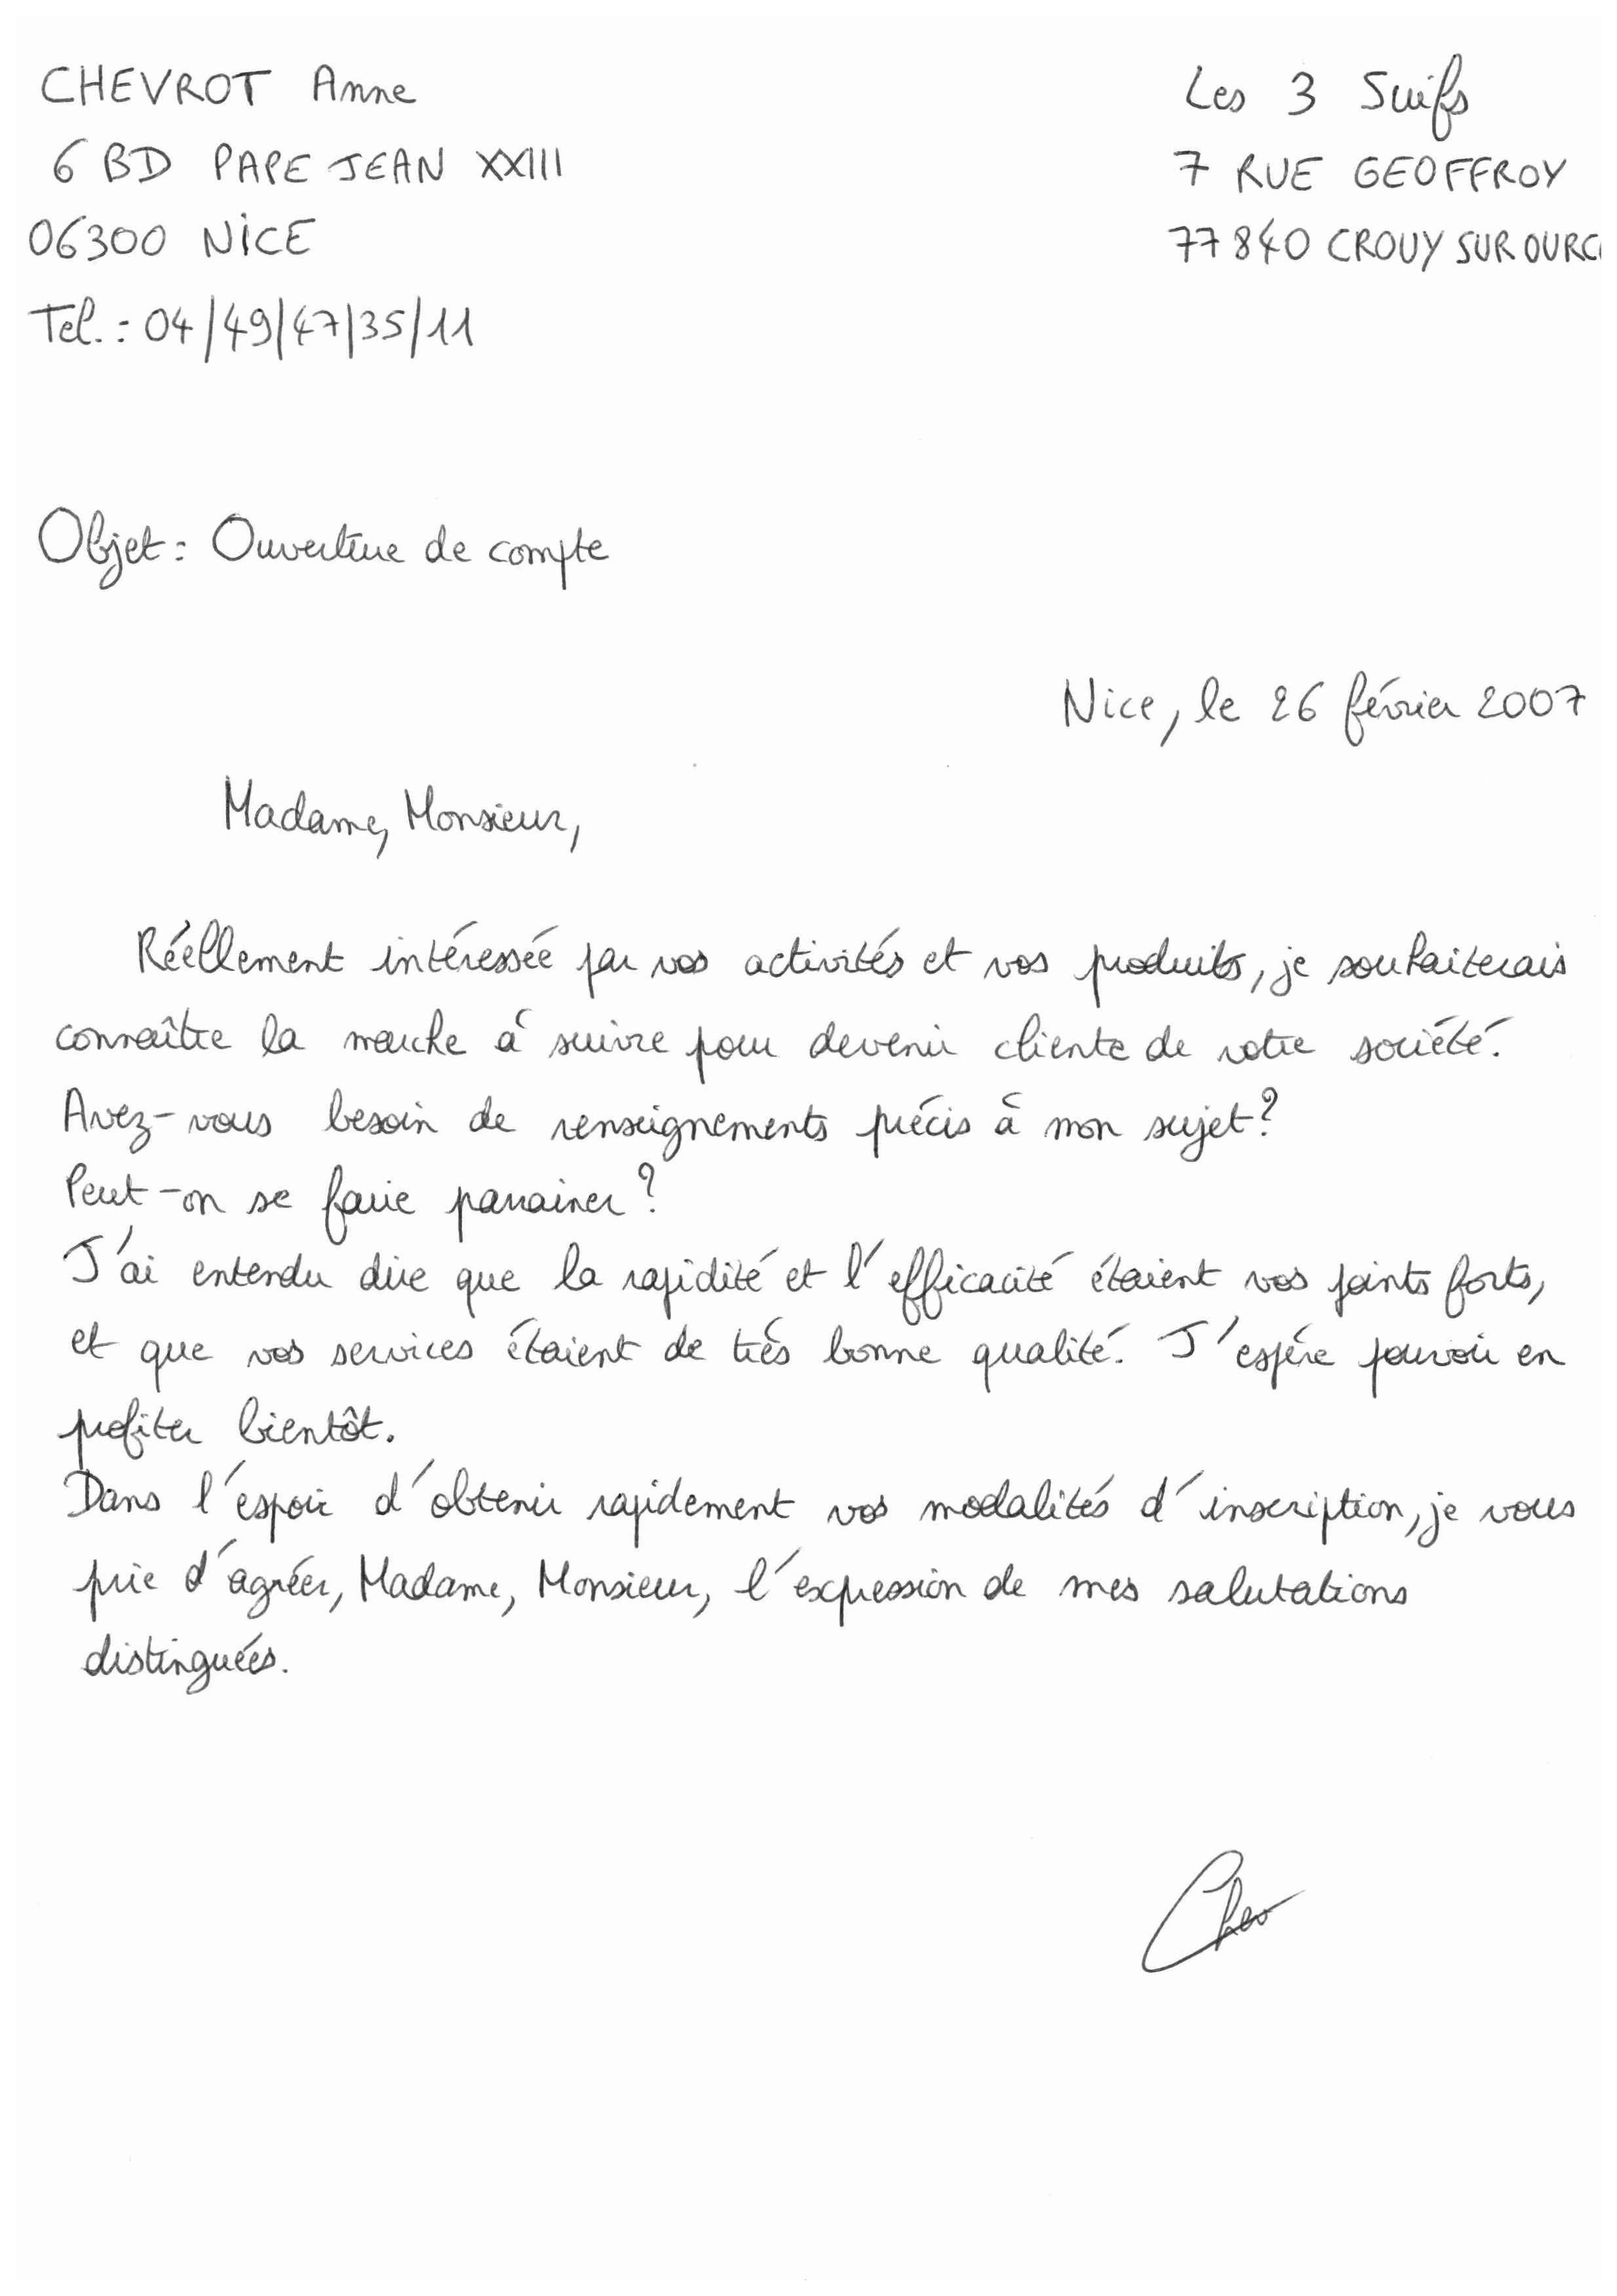 CHEVROT Anne
6 BD PAPE JEAN XXIII
06300 NICE
Tel.: 04/49/47/35/11
Les 3 Suifs
7 RUE GEOFFROY
77840 CROUY SUR OURC
Objet: Ouverture de compte
Nice, le 26 février 2007
Madame, Monsieur,
Réellement intéressée par vos activités et vos produits, je souhaiterais
connaître la marche à suivre pour devenir cliente de votre société.
Avez-vous besoin de renseignements précis à mon sujet?
Peut-on se faire parrainer?
J'ai entendu dire que la rapidité et l'efficacité étaient vos points forts,
et que vos services étaient de très bonne qualité. J'espère pouvoir en
profiter bientôt.
Dans l'espoir d'obtenir rapidement vos modalités d'inscription, je vous
prie d'agréer, Madame, Monsieur, l'expression de mes salutations
distinguées.
Chev